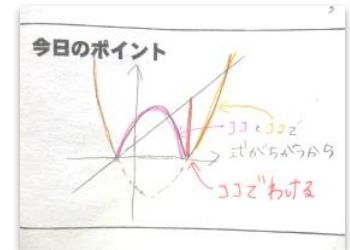 今日のポイント
ココとココで
式がちがうから
ココでわける